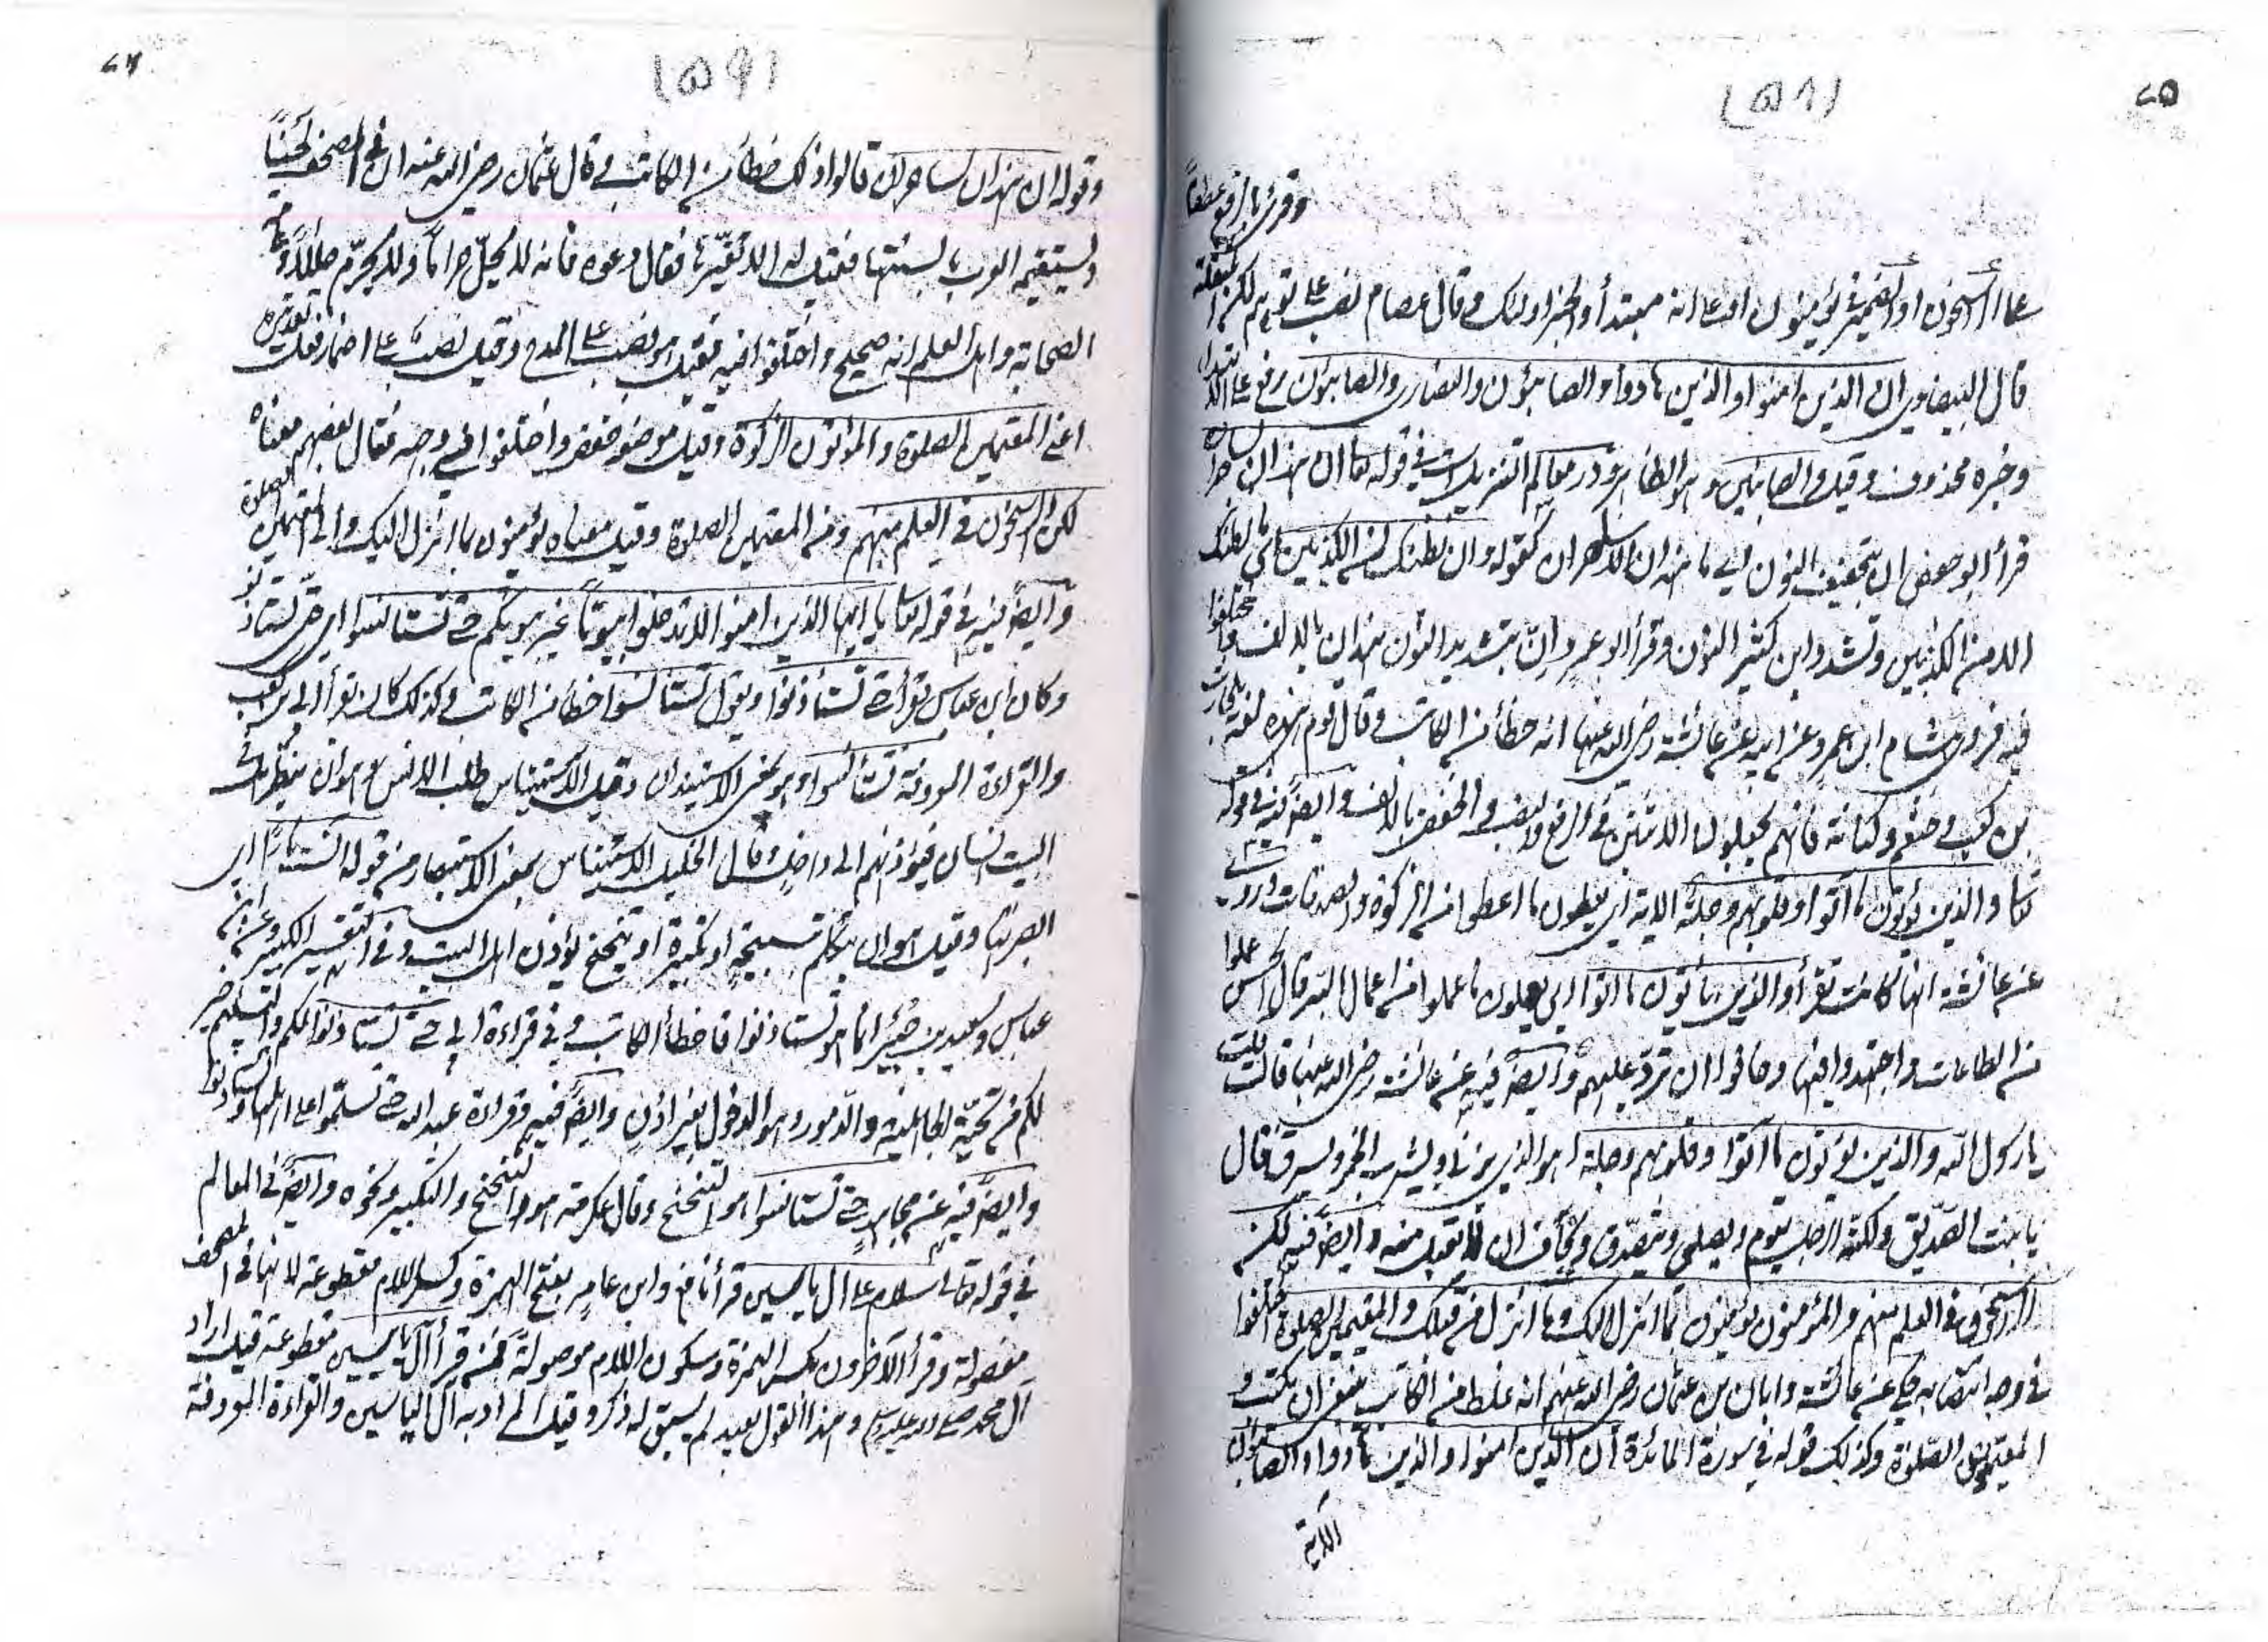 ٧٥
(٥٨)
وقرئ بالرفع عطفاً
على الراسخون او الضمير في يؤمنون او على انه مبتدأ والخبر اولئك وقال عصام نصب على توهم لكن المثقلة
قال البيضاوى ان الذين امنوا والذين هادوا والصابؤن والنصارى والصابؤن رفع على الابتداء
وخبره محذوف وقيل والصابئين وهو الظاهر ودر معالم التنزيل است في قوله تعا ان هذان لساحران
قرأ ابو حفص ان بتخفيف النون اي ما هذان الا ساحران كقوله وان نظنك لمن الكذبين اي ما نظنك
الا من الكذبين وتشدد ابن كثير النون وقرأ ابو عمرو انّ بتشديد النون هذان بالالف واختلفوا
فيه فروى هشام ابن عمرو عن ابيه عن عائشة رضى الله عنها انه خطأ من الكاتب وقال قوم هذه لغة بلحارث
بن كعب وخثعم وكنانة فانهم يجعلون الاثنين في الرفع والنصب والخفض بالالف وايضا فيه في قوله
تعا والذين يؤتون ما آتوا وقلوبهم وجلة الاية اى يعطون ما اعطوا من الزكوة والصدقات وروى
عن عائشة انها كانت تقرأ والذين يأتون ما اتوا اى يعملون ما عملوا من اعمال البر قال الحسن عملوا
من الطاعات واجتهدوا فيها وخافوا ان تردّ عليهم وايضا فيه عن عائشة رضى الله عنها قالت قلت
يا رسول الله والذين يؤتون ما آتوا وقلوبهم وجلة اهو الذي يزنى ويشرب الخمر ويسرق قال
يا بنت الصدّيق ولكنه الرجل يقوم ويصلى ويتصدّق ويخاف ان لا يقبل منه وايضا فيه لكن
الراسخون في العلم منهم والمؤمنون يؤمنون بما انزل اليك وما انزل من قبلك والمقيمين الصلوة اختلفوا
في وجه انتصابه فحكى عن عائشة وابان بن عثمان رضى الله عنهم انه غلط من الكاتب ينبغى ان يكتب و
المقيمون الصلوة وكذلك قوله في سورة المائدة ان الذين امنوا والذين هادوا والصابؤن
الاية
٧٦
(٥٩)
وقوله ان هذان لساحران قالوا ذلك خطأ من الكاتب وقال عثمان رضى الله عنه ان في المصحف لحناً
وستقيمه العرب بالسنتها فقيل له الا تغيّره فقال دعوه فانه لا يحلّ حراماً ولا يحرّم حلالاً وعامة
الصحابة واهل العلم انه صحيح واختلفوا فيه فقيل هو نصب على المدح وقيل نصب على اضمار فعل تقديره
اعنى المقيمين الصلوة والمؤتون الزكوة وقيل موضعه خفض واختلفوا في وجهه فقال بعضهم معناه
لكن الراسخون في العلم منهم ومن المقيمين الصلوة وقيل معناه يؤمنون بما انزل اليك والى المقيمين الصلوة
وايضا فيه في قوله تعا يا ايها الذين امنوا لا تدخلوا بيوتاً غير بيوتكم حتى تستأنسوا اى حتى تستاذنوا
وكان ابن عباس يقرأ حتى تستأذنوا ويقول تستأنسوا خطأ من الكاتب وكذلك كان يقرأ ابي بن كعب
والقراءة المعروفة تستأنسوا وهو بمعنى الاستيذان وقيل الاستيناس طلب الانس وهو ان ينظر هل في
البيت انسان فيؤذنهم انى داخل وقال الخليل الاستيناس بمعنى الاستبصار من قوله آنست نارا اى
ابصرتها وقيل هو ان يتكلم بتسبيحة او تكبيرة او يتنحنح يؤذن اهل البيت وفي التفسير الكبير وعن ابن
عباس وسعيد بن جبير انما هو تستأذنوا فاخطأ الكاتب وفي قراءة ابي حتى تستأذنوا لكم والتسليم خير
لكم من تحية الجاهلية والدمور وهو الدخول بغير اذن وايضا فيه وقراءة عبد الله حتى تسلموا على اهلها وتستأذنوا
وايضا فيه عن مجاهد حتى تستأنسوا هو التنحنح وقال عكرمة هو التنحنح والتكبير ونحوه وايضا في المعالم
في قوله تعالى سلام على آل ياسين قرأ نافع وابن عامر بفتح الهمزة وكسر اللام مقطوعة لانها في المصحف
مفصولة وقرأ الآخرون بكسر الهمزة وسكون اللام موصولة فمن قرأ آل ياسين مقطوعة قيل اراد
آل محمد صلى الله عليه وسلم وهذا القول بعيد لم يسبق له ذكر وقيل اراد به آل الياسين والقراءة المعروفة